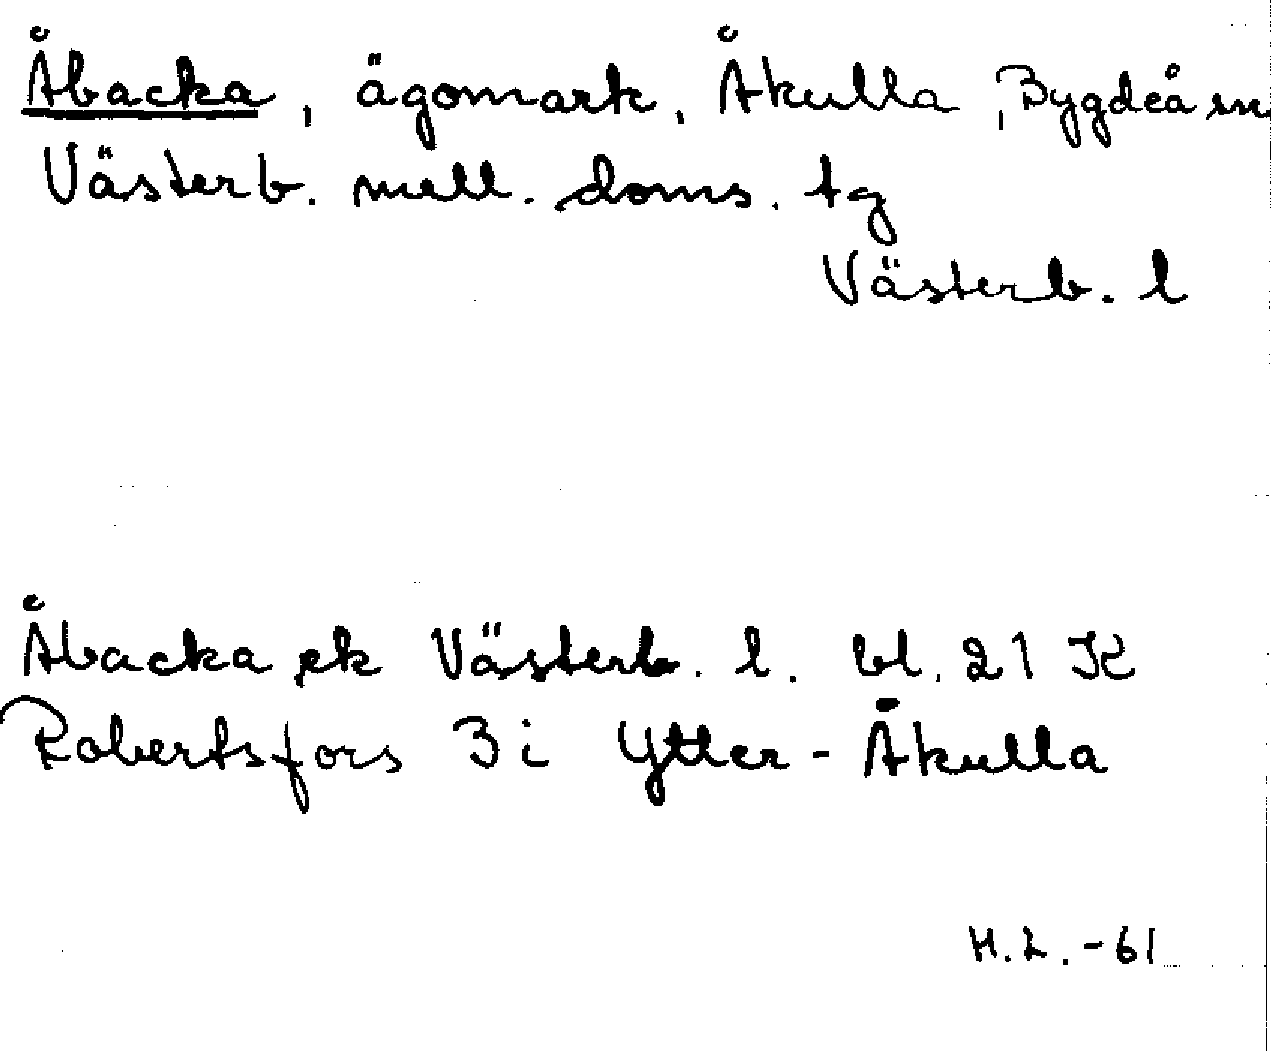 Åbacka, ägomark, Åkulla, Bygdeå sn
Västerb. mell. doms. tg
Västerb. l
Åbacka ek Västerb. l. bl. 21 K
Robertsfors 3 i Ytter-Åkulla
H.L.-61